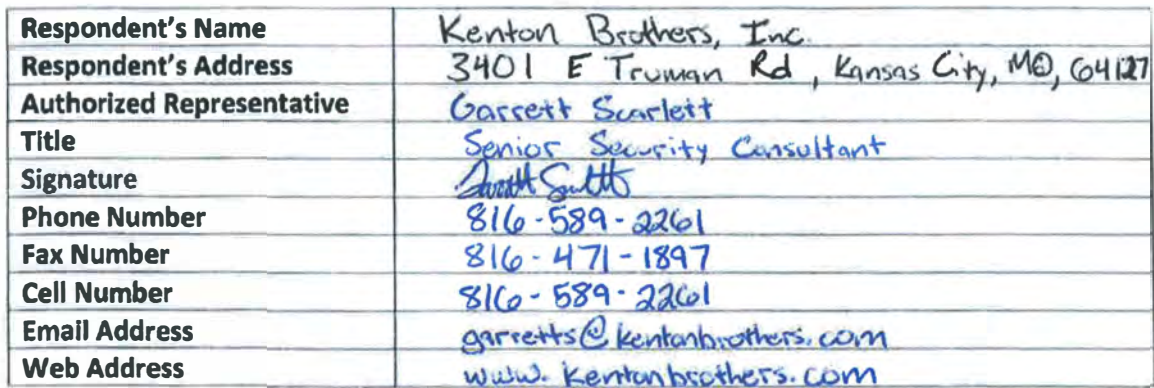 Respondent's Name Kenton Brothers, Inc.
Respondent's Address 3401 E Truman Rd, Kansas City, MO, 64127
Authorized Representative Garrett Scarlett
Title Senior Security Consultant
Signature
Phone Number 816-589-2261
Fax Number 816-471-1897
Cell Number 816-589-2261
Email Address garretts@kentonbrothers.com
Web Address www.kentonbrothers.com